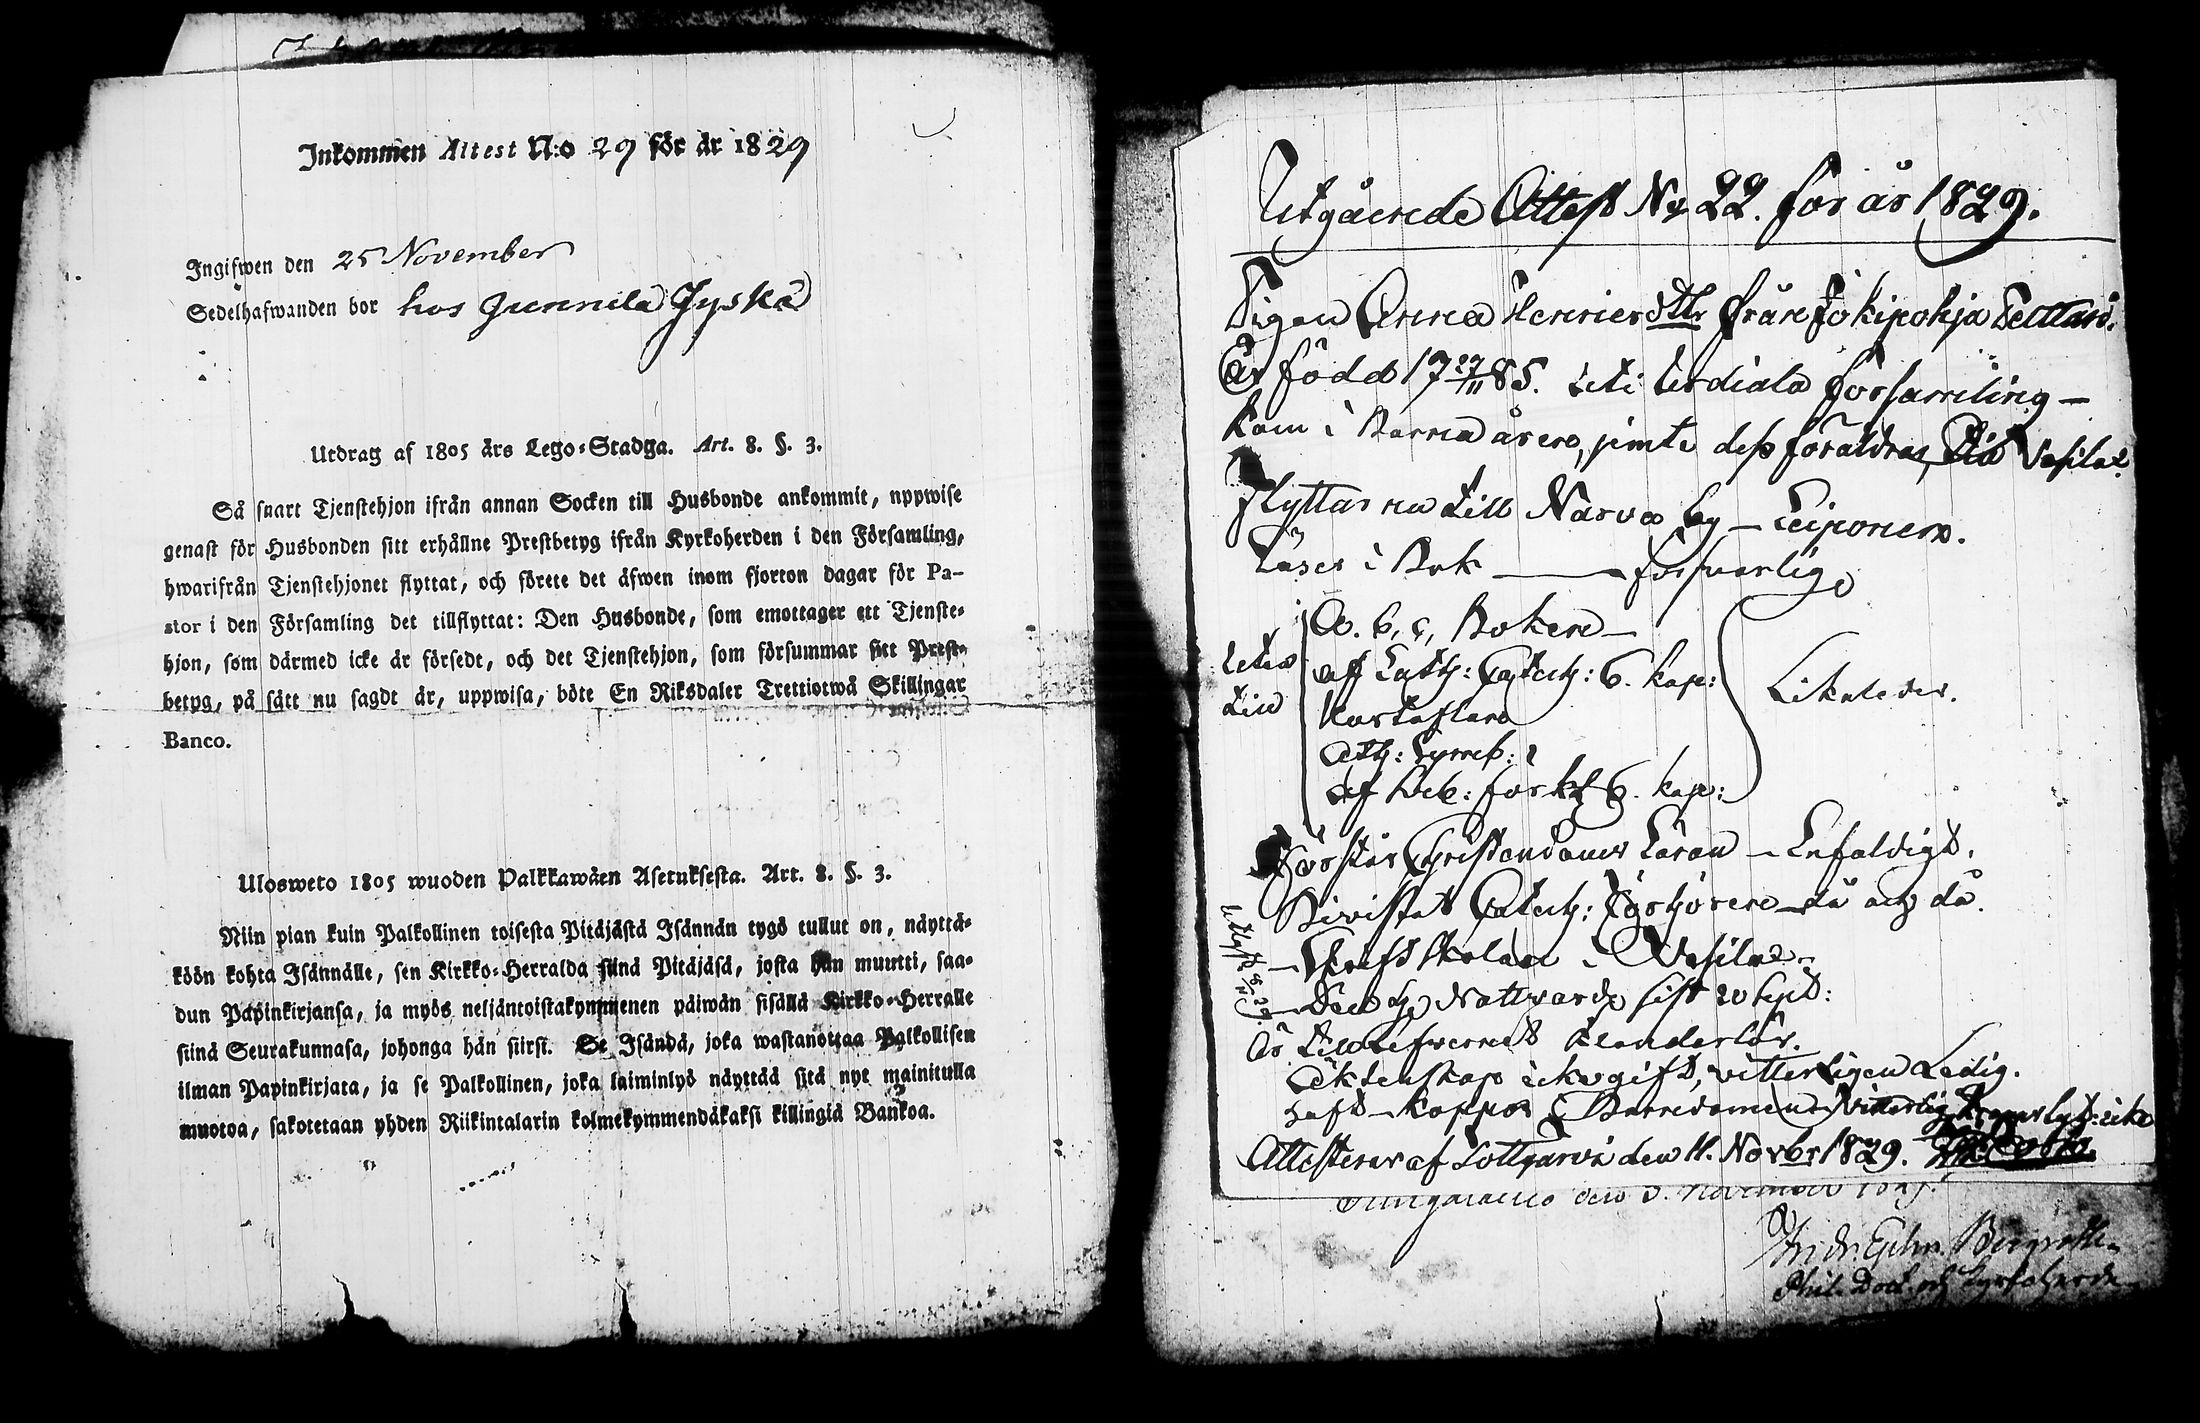 Inkommen Attest N:o 29 för år 1829
Ingifwen den 25 November
Sedelhafwanden bor hos Gunnila Jyskä
Utdrag af 1805 års Lego-Stadga. Art. 8. §. 3.
Så snart Tjenstehjon ifrån annan Socken till Husbonde ankommit, uppwise
genast för Husbonden sitt erhållne Prestbetyg ifrån Kyrkoherden i den Församling,
hwarifrån Tjenstehjonet flyttat, och förete det äfwen inom fjorton dagar för Pa-
stor i den Församling det tillflyttat: Den Husbonde, som emottager ett Tjenste-
hjon, som därmed icke är försedt, och det Tjenstehjon, som försummar sitt Prest-
betyg, på sätt nu sagdt är, uppwisa, böte En Riksdaler Trettiotwå Skillingar
Banco.
Ulosweto 1805 wuoden Palkkawäen Asetuksesta. Art. 8. §. 3.
Niin pian kuin Palkollinen toisesta Pitäjästä Isännän tygö tullut on, näyttä-
köön kohta Isännälle, sen Kirkko-Herralda siinä Pitäjäsä, josta hän muutti, saa-
dun Papinkirjansa, ja myös neljäntoistakymmenen päiwän sisällä Kirkko-Herralle
siinä Seurakunnasa, johonga hän siirsi. Se Isändä, joka wastanottaa Palkollisen
ilman Papinkirjata, ja se Palkollinen, joka laiminlyö näyttää sitä nyt mainitulla
muotoa, sakotetaan yhden Riikintalarin kolmekymmendäkaksi killingiä Bankoa.
Utgående Attest No 22. för år 1829.
Pigan Anna Henricsdttr från Jokipohja
Är född 17 27/11 85. uti Urdiala församling –
kom i Barna åren, jemte dess föräldrar, till Vesilax
Flyttar nu till Narva by –
Läser i Bok – försvarlige
Utan
till
A. b. c, Boken –
af Luth: Catech: 6. kap:
Hustaflan
Ath: Symb:
af Sveb: förkl 6. kap:
Likaledes.
Förstår Christendoms Läran – Enfaldigt.
Bivistat Catech: förhören då och då.
– Skriftskolan i Vesilax
– Den H. Nattvard sist 20 Sept:
Är till Lefvernet klanderlös.
Äktenskap icke gift, vitterligen Ledig.
Haft – koppor i Barndomen
Attesteras af Tottijärvi den 11. Novbr 1829.
den 3. November
Phil. Doct. och Kyrkoherde